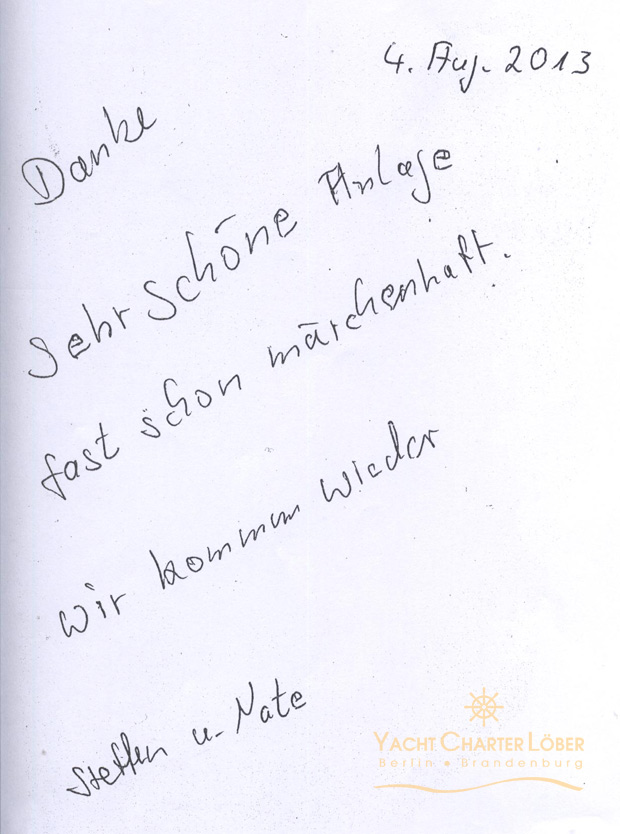 4. Aug. 2013
Danke
Sehr schöne Anlage
fast schon märchenhaft.
wir kommen wieder
Steffen u. Nate
YACHT CHARTER LÖBER
Berlin • Brandenburg